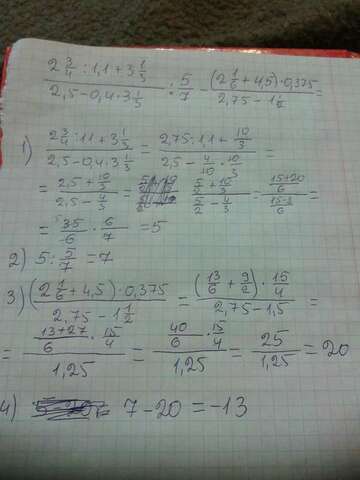 (2 3/4 : 1,1 + 3 1/3)/(2,5 - 0,4 · 3 1/3) : 5/7 - ((2 1/6 + 4,5) · 0,375)/(2,75 - 1 1/2) =
1) (2 3/4 : 1,1 + 3 1/3)/(2,5 - 0,4 · 3 1/3) = (2,75 : 1,1 + 10/3)/(2,5 - 4/10 · 10/3) =
= (2,5 + 10/3)/(2,5 - 4/3) = (5/2 + 10/3)/(5/2 - 4/3) = ((15+20)/6)/((15-8)/6) =
= 35/6 · 6/7 = 5
2) 5 : 5/7 = 7
3) ((2 1/6 + 4,5) · 0,375)/(2,75 - 1 1/2) = ((13/6 + 9/2) · 15/4)/(2,75 - 1,5) =
= ((13+27)/6 · 15/4)/1,25 = (40/6 · 15/4)/1,25 = 25/1,25 = 20
4) 7 - 20 = -13